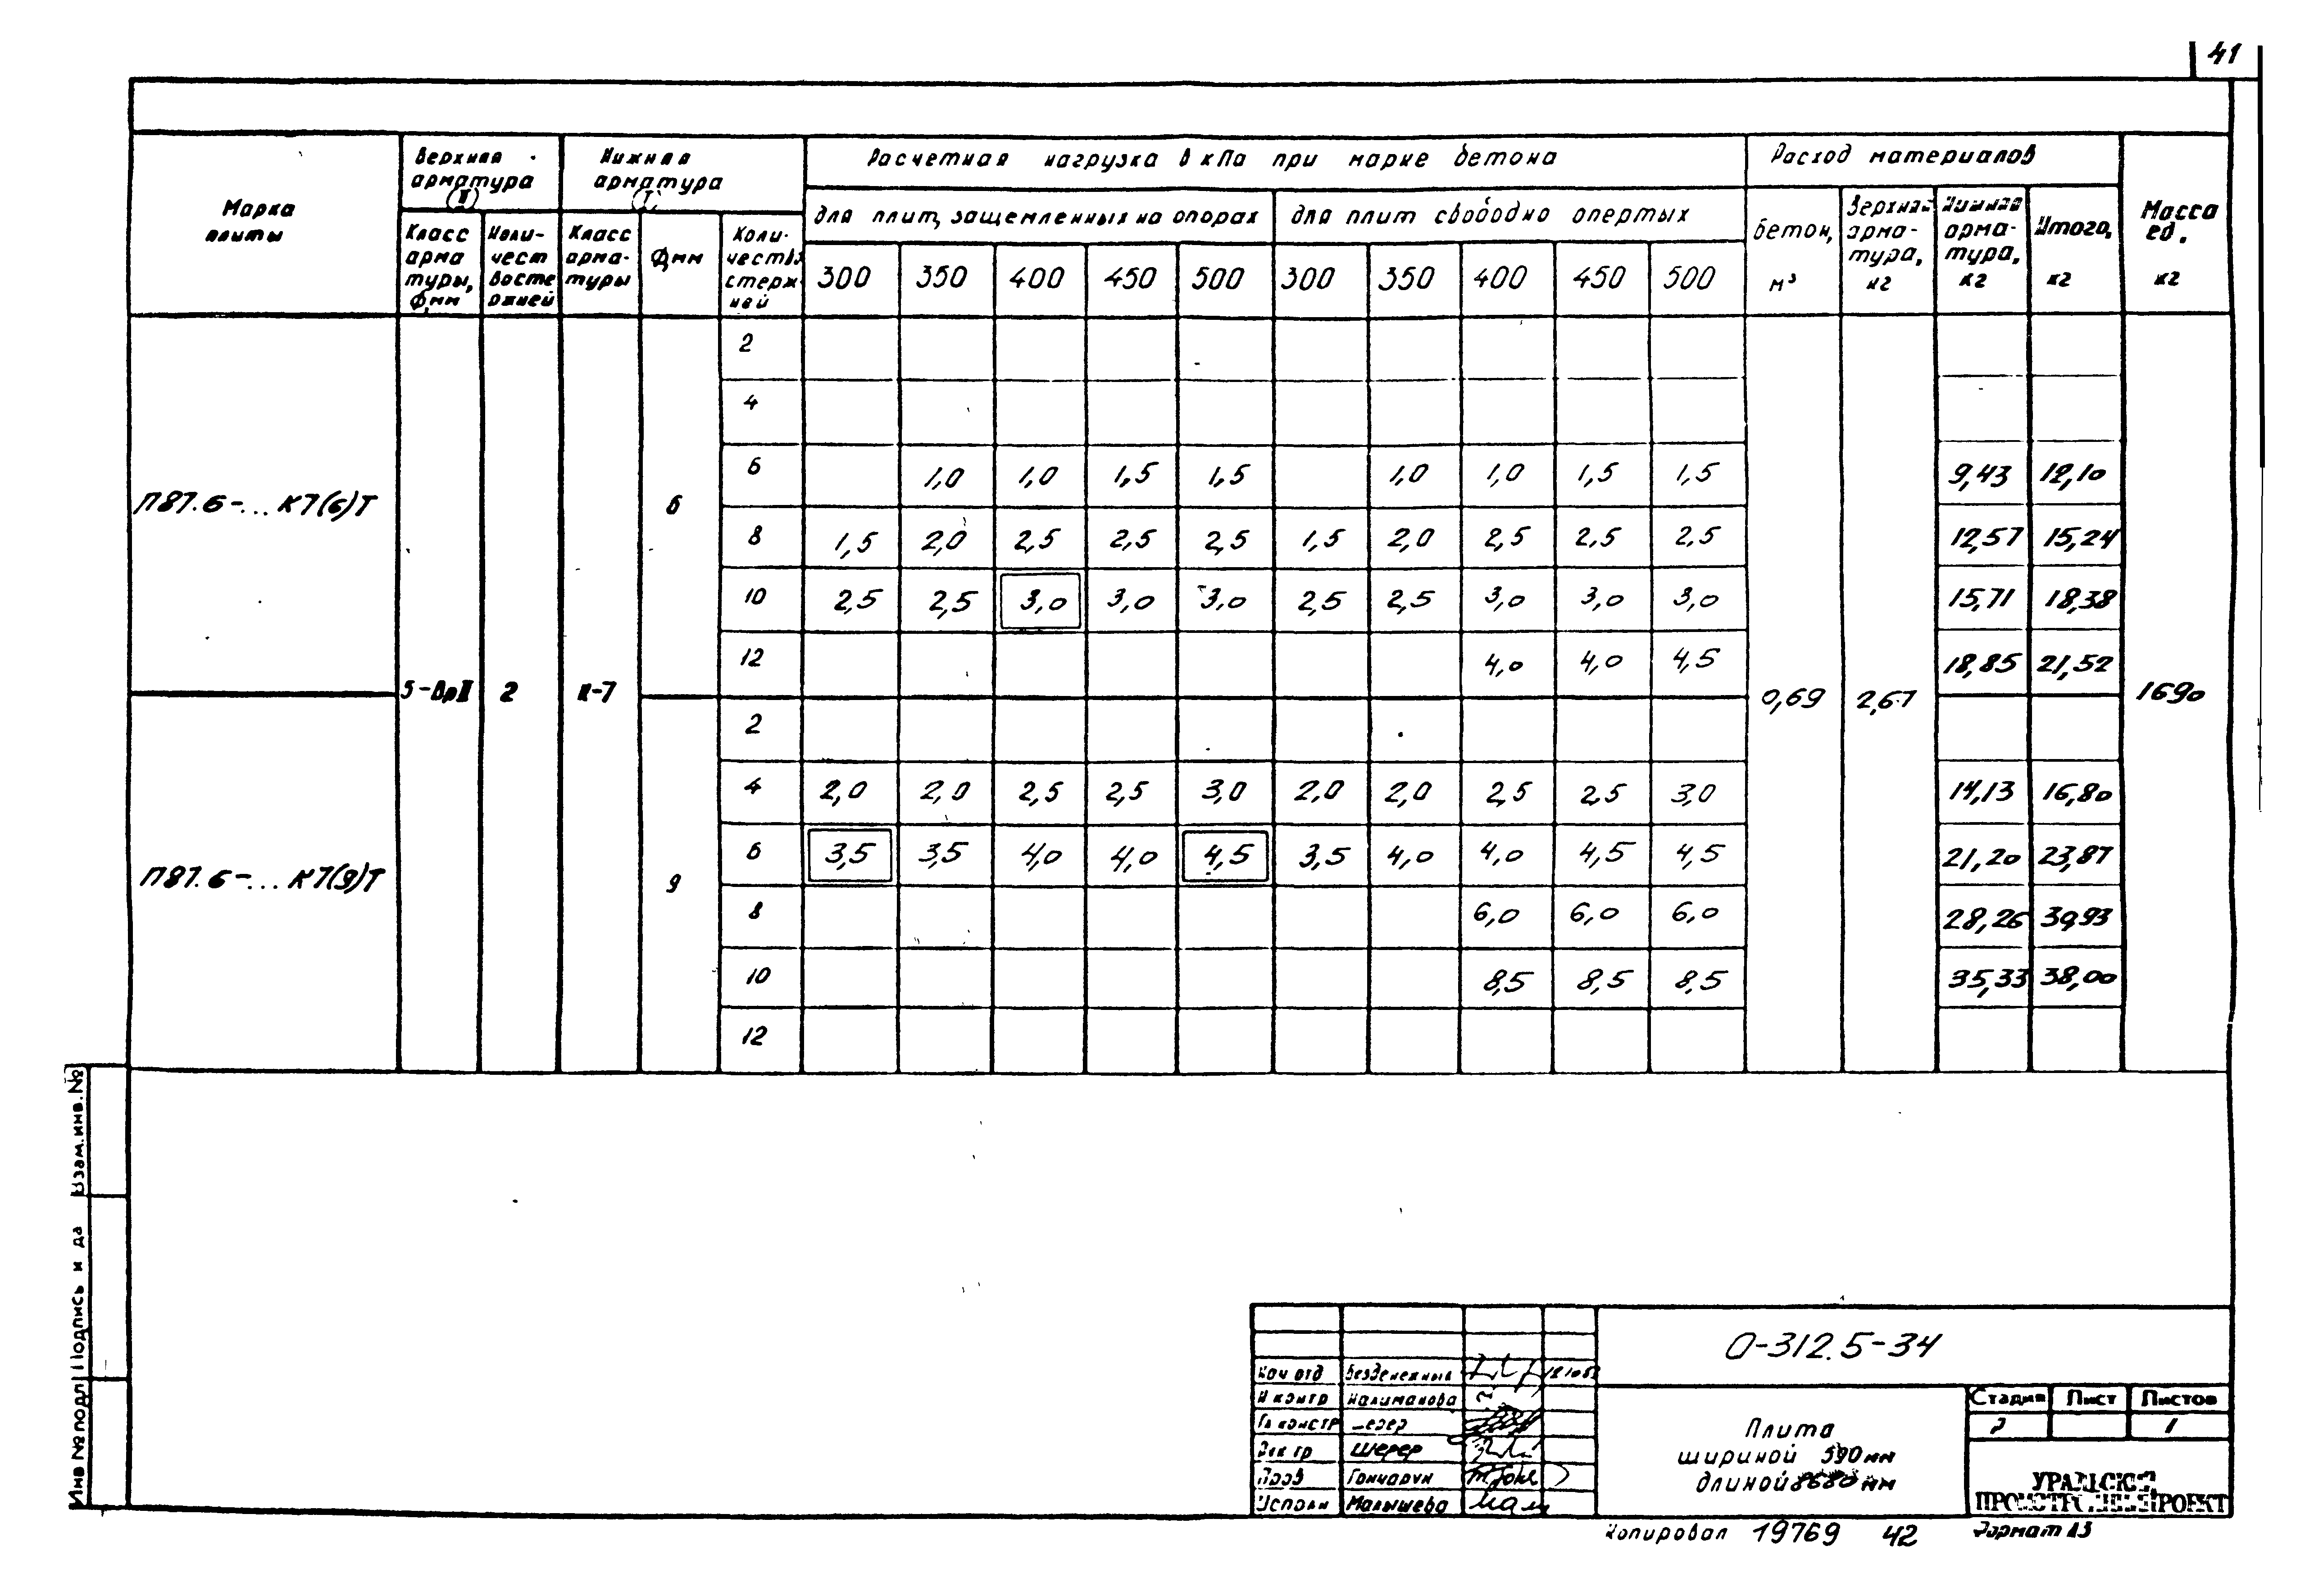 41
Марка плиты
Верхняя арматура (II)
Нижняя арматура (I)
Расчетная нагрузка в кПа при марке бетона
Расход материалов
Масса ед. кг
Класс арма туры, Фмм
Коли- чест восте ржней
Класс арма- туры
Ф,мм
Коли- честв стерж ней
для плит, защемленных на опорах
для плит свободно опертых
бетон, м³
Верхняя арма- тура, кг
Нижняя арма- тура, кг
Итого, кг
300 350 400 450 500 300 350 400 450 500
П87.6-... К7(6)Т
5-ВрII 2 К-7 6
2
4
6 1,0 1,0 1,5 1,5 1,0 1,0 1,5 1,5 9,43 12,10
8 1,5 2,0 2,5 2,5 2,5 1,5 2,0 2,5 2,5 2,5 12,57 15,24
10 2,5 2,5 3,0 3,0 3,0 2,5 2,5 3,0 3,0 3,0 15,71 18,38
12 4,0 4,0 4,5 18,85 21,52
0,69 2,67 1690
П87.6-... К7(9)Т
9
2
4 2,0 2,0 2,5 2,5 3,0 2,0 2,0 2,5 2,5 3,0 14,13 16,80
6 3,5 3,5 4,0 4,0 4,5 3,5 4,0 4,0 4,5 4,5 21,20 23,87
8 6,0 6,0 6,0 28,26 30,93
10 8,5 8,5 8,5 35,33 38,00
12
Взам.инв.№
Подпись и да
Инв №подл
О-312.5-34
Нач отд Безденежных
Н контр Налиманова
Гл констр
Рук гр Шерер
Пров Гончарук
Исполн Малышева
Плита
шириной 590 мм
длиной 8680 мм
Стадия Лист Листов
Р 1
УРАЛЬСКИЙ
ПРОМСТРОЙНИИПРОЕКТ
Копировал 19769 42 Формат А3